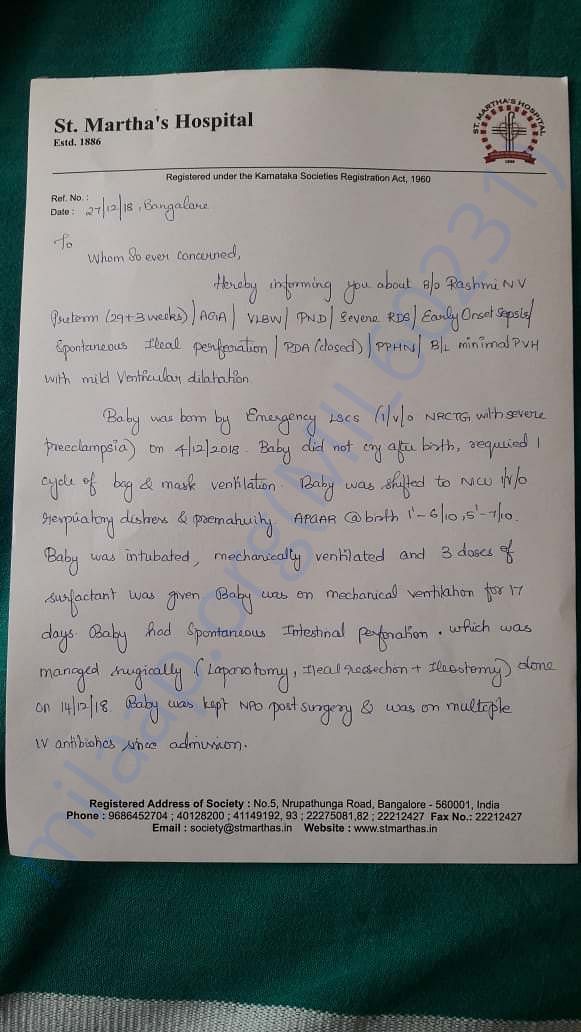 St. Martha's Hospital
Estd. 1886
ST. MARTHA'S HOSPITAL
1886
Registered under the Karnataka Societies Registration Act, 1960
Ref. No. :
Date : 27/12/18, Bangalore
To
Whom So ever concerned,
Hereby informing you about B/o Rashmi NV
Preterm (29+3 weeks) / AGA / VLBW / PND / Severe RDS / Early Onset Sepsis/
Spontaneous Ileal perforation / PDA (closed) / PPHN / B/L minimal PVH
with mild Ventricular dilatation.
Baby was born by Emergency LSCS (i/v/o NRCTG with severe
preeclampsia) on 4/12/2018. Baby did not cry after birth, required 1
cycle of bag & mask ventilation. Baby was shifted to NICU i/v/o
respiratory distress & prematurity. APGAR @ birth 1'-6/10, 5'-7/10.
Baby was intubated, mechanically ventilated and 3 doses of
surfactant was given. Baby was on mechanical ventilation for 17
days. Baby had Spontaneous Intestinal perforation. which was
managed surgically (Laparotomy, Ileal resection + Ileostomy) done
on 14/12/18. Baby was kept NPO post surgery & was on multiple
IV antibiotics since admission.
Registered Address of Society : No.5, Nrupathunga Road, Bangalore - 560001, India
Phone : 9686452704 ; 40128200 ; 41149192, 93 ; 22275081,82 ; 22212427 Fax No.: 22212427
Email : society@stmarthas.in Website : www.stmarthas.in
milaap.org(MIL602317)